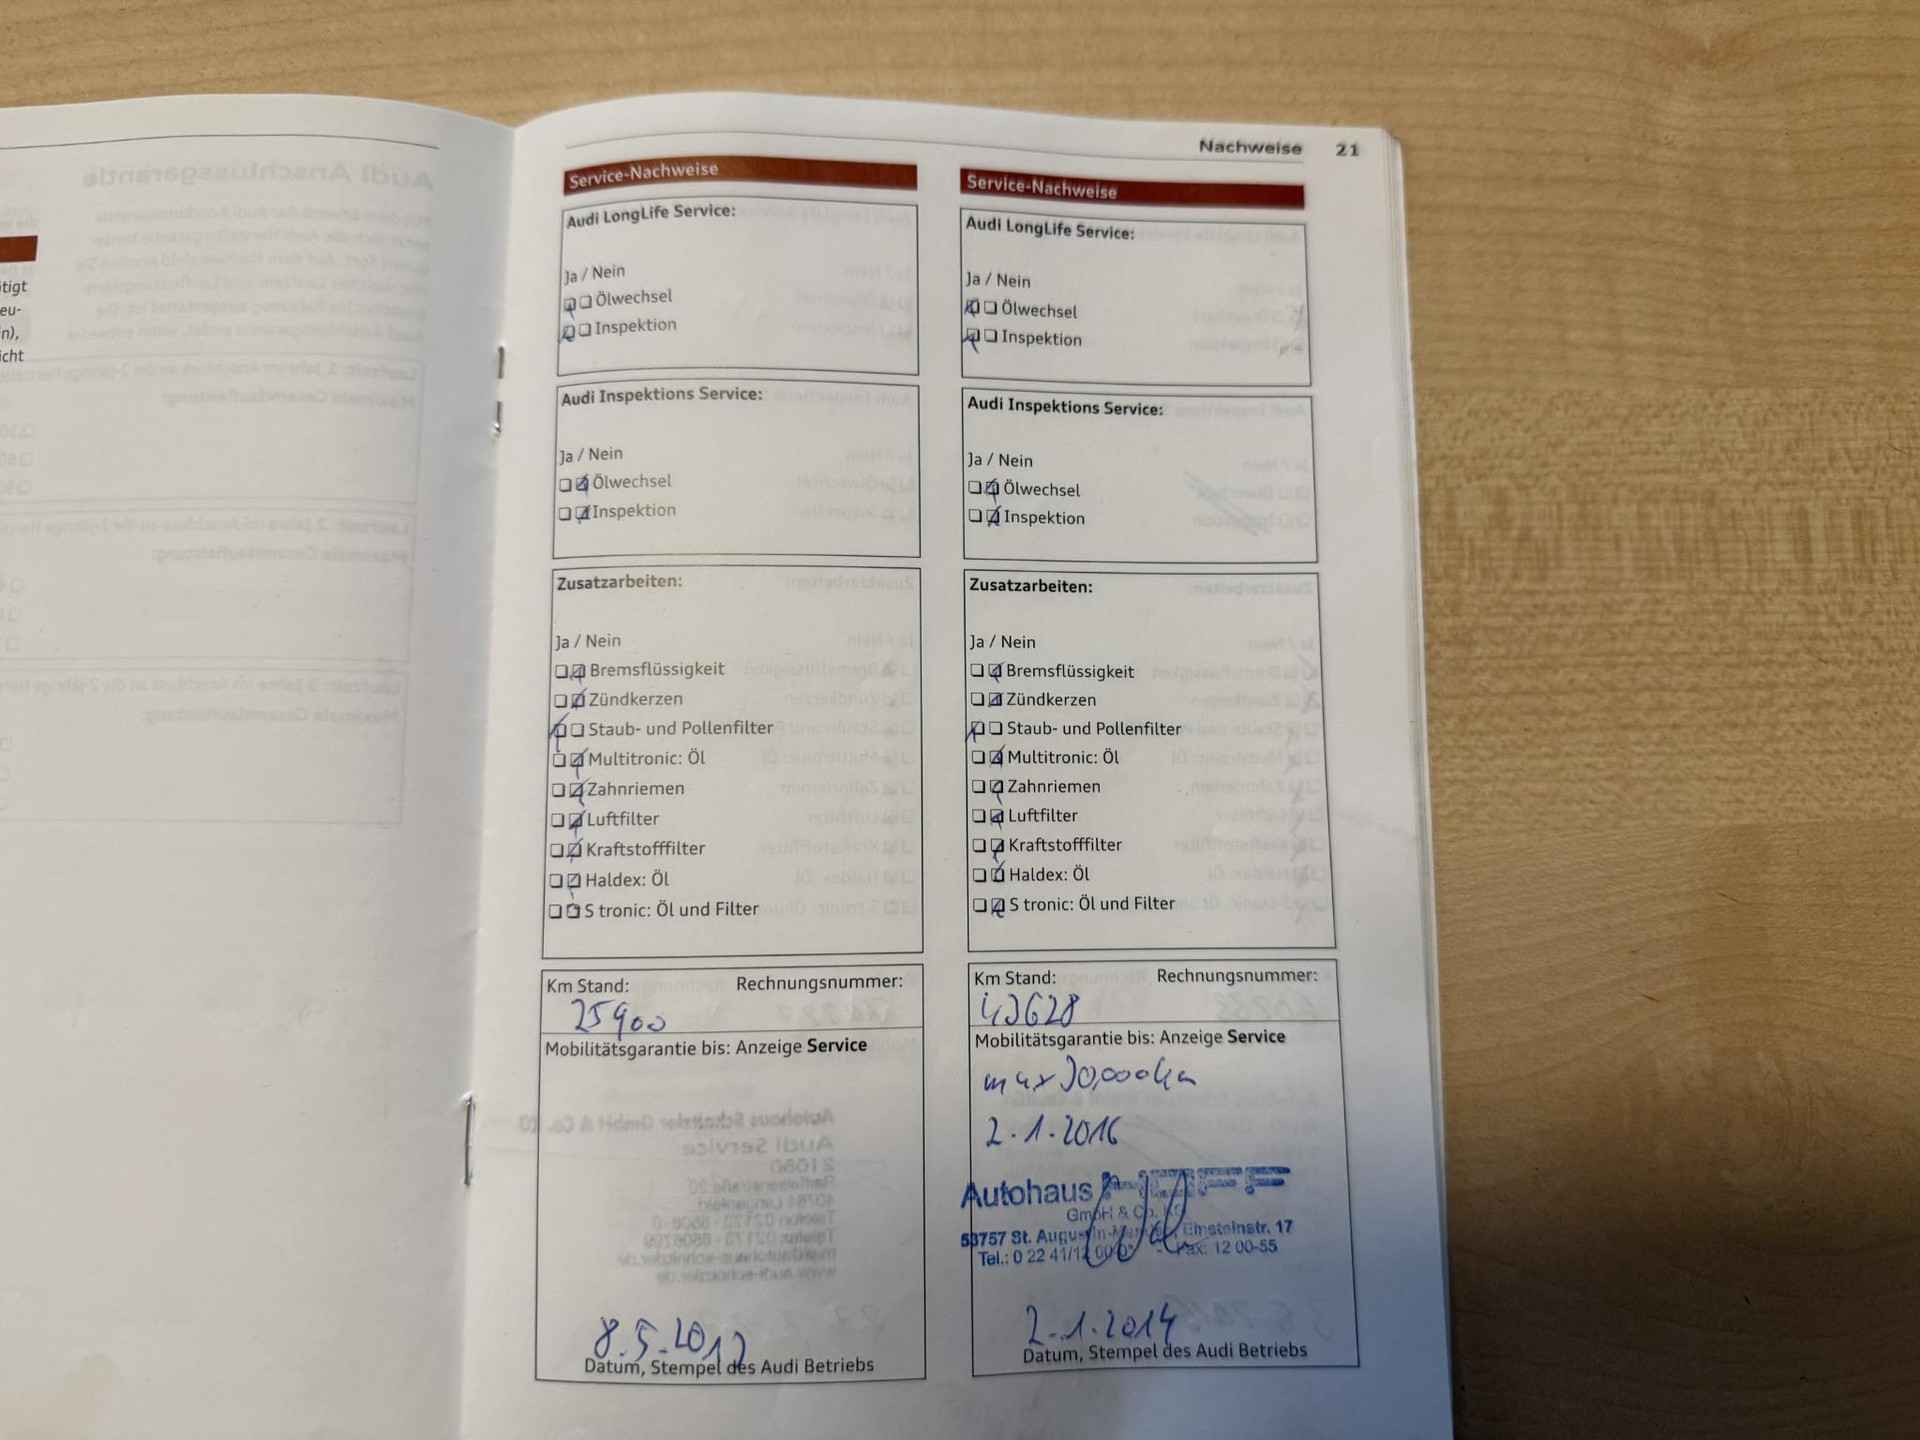 Nachweise 21
tigt
eu-
n),
icht
Service-Nachweise
Audi LongLife Service:
Ja / Nein
Ölwechsel
Inspektion
Audi Inspektions Service:
Ja / Nein
Ölwechsel
Inspektion
Zusatzarbeiten:
Ja / Nein
Bremsflüssigkeit
Zündkerzen
Staub- und Pollenfilter
Multitronic: Öl
Zahnriemen
Luftfilter
Kraftstofffilter
Haldex: Öl
S tronic: Öl und Filter
Km Stand: Rechnungsnummer:
25900
Mobilitätsgarantie bis: Anzeige Service
8.5.2012
Datum, Stempel des Audi Betriebs
Service-Nachweise
Audi LongLife Service:
Ja / Nein
Ölwechsel
Inspektion
Audi Inspektions Service:
Ja / Nein
Ölwechsel
Inspektion
Zusatzarbeiten:
Ja / Nein
Bremsflüssigkeit
Zündkerzen
Staub- und Pollenfilter
Multitronic: Öl
Zahnriemen
Luftfilter
Kraftstofffilter
Haldex: Öl
S tronic: Öl und Filter
Km Stand: Rechnungsnummer:
43628
Mobilitätsgarantie bis: Anzeige Service
max 30,000km
2.1.2016
Autohaus HAFF
GmbH & Co. KG
53757 St. Augustin- Einsteinstr. 17
Tel.: 0 22 41/12 00 0 - Fax: 12 00-55
2.1.2014
Datum, Stempel des Audi Betriebs